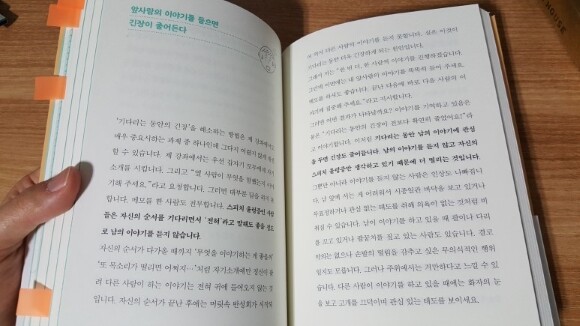 앞사람의 이야기를 들으면
긴장이 줄어든다
'기다리는 동안의 긴장'을 해소하는 방법은 제 강좌에서도
매우 중요시하는 과제 중 하나인데
할 수 있습니다. 제 강좌에서는 우선
소개를 시킵니다. 그리고 "몇 사람이 무엇을 말했는지
해 주세요."라고 요청합니다. 그러면 대부분
합니다. 메모를 한 사람도 전무합니다. 스피치 울렁증인 사람
들은 자신의 순서를 기다리면서 '전혀'라고 말해도 좋을 정도
로 남의 이야기를 듣지 않습니다.
자신의 순서가 다가올 때까지 '무엇을 이야기하는 게 좋을까'
'또 목소리가 떨리면 어쩌지…'처럼 자기소개에만 정신이 팔
려 다른 사람이 하는 이야기는 전혀 귀에 들어오지 않는 것
입니다. 자신의 순서가 끝난 후에는 머릿속 반성회가 시작되
다른 사람의 이야기를 듣지 못합니다. 실은 이것이
기다리는 동안 더욱 긴장하게 하는 원인입니다.
그래서 저는 "한 번 더, 한 사람씩 이야기를 진행하겠습니다.
이번에는 내 앞사람의 이야기를 똑똑히 들어 주세요.
메모를 하셔도 좋습니다. 끝난 다음에 바로 다음 사람의 이
해 주세요."라고 지시합니다.
그러면 어떤 결과가 나타날까요? 이야기를 기억하고 있음은
물론 "기다리는 동안의 긴장이 전보다 확연히 줄었어요!"라
고 이야기합니다. 이처럼 기다리는 동안 남의 이야기에 관심
을 두면 긴장도 줄어듭니다. 남의 이야기를 듣지 않고 자신의
스피치 울렁증만 생각하고 있기 때문에 더 떨리는 것입니다.
그뿐만 아니라 이야기를 듣지 않는 사람은 인상도 나빠집니
다. 남 앞에 서는 게 어려워서 시종일관 바닥을 보고 있거나
무표정하거나 관심 없는 태도를 취해 의욕이 없는 것처럼 여
겨집니다. 남이 이야기하고 있을 때 팔이나 다리
를 꼬고 있거나 팔꿈치를 짚고 있는 사람도 있습니다.
없으나 손발의 떨림을 감추고 싶은 무의식적인 행위
일지도 모릅니다. 그러나 주위에서는 거만하다고 느낄 수 있
습니다. 다른 사람이 이야기하고 있을 때에는 화자의 눈
을 보고 고개를 끄덕이며 관심 있는 태도를 보이세요.